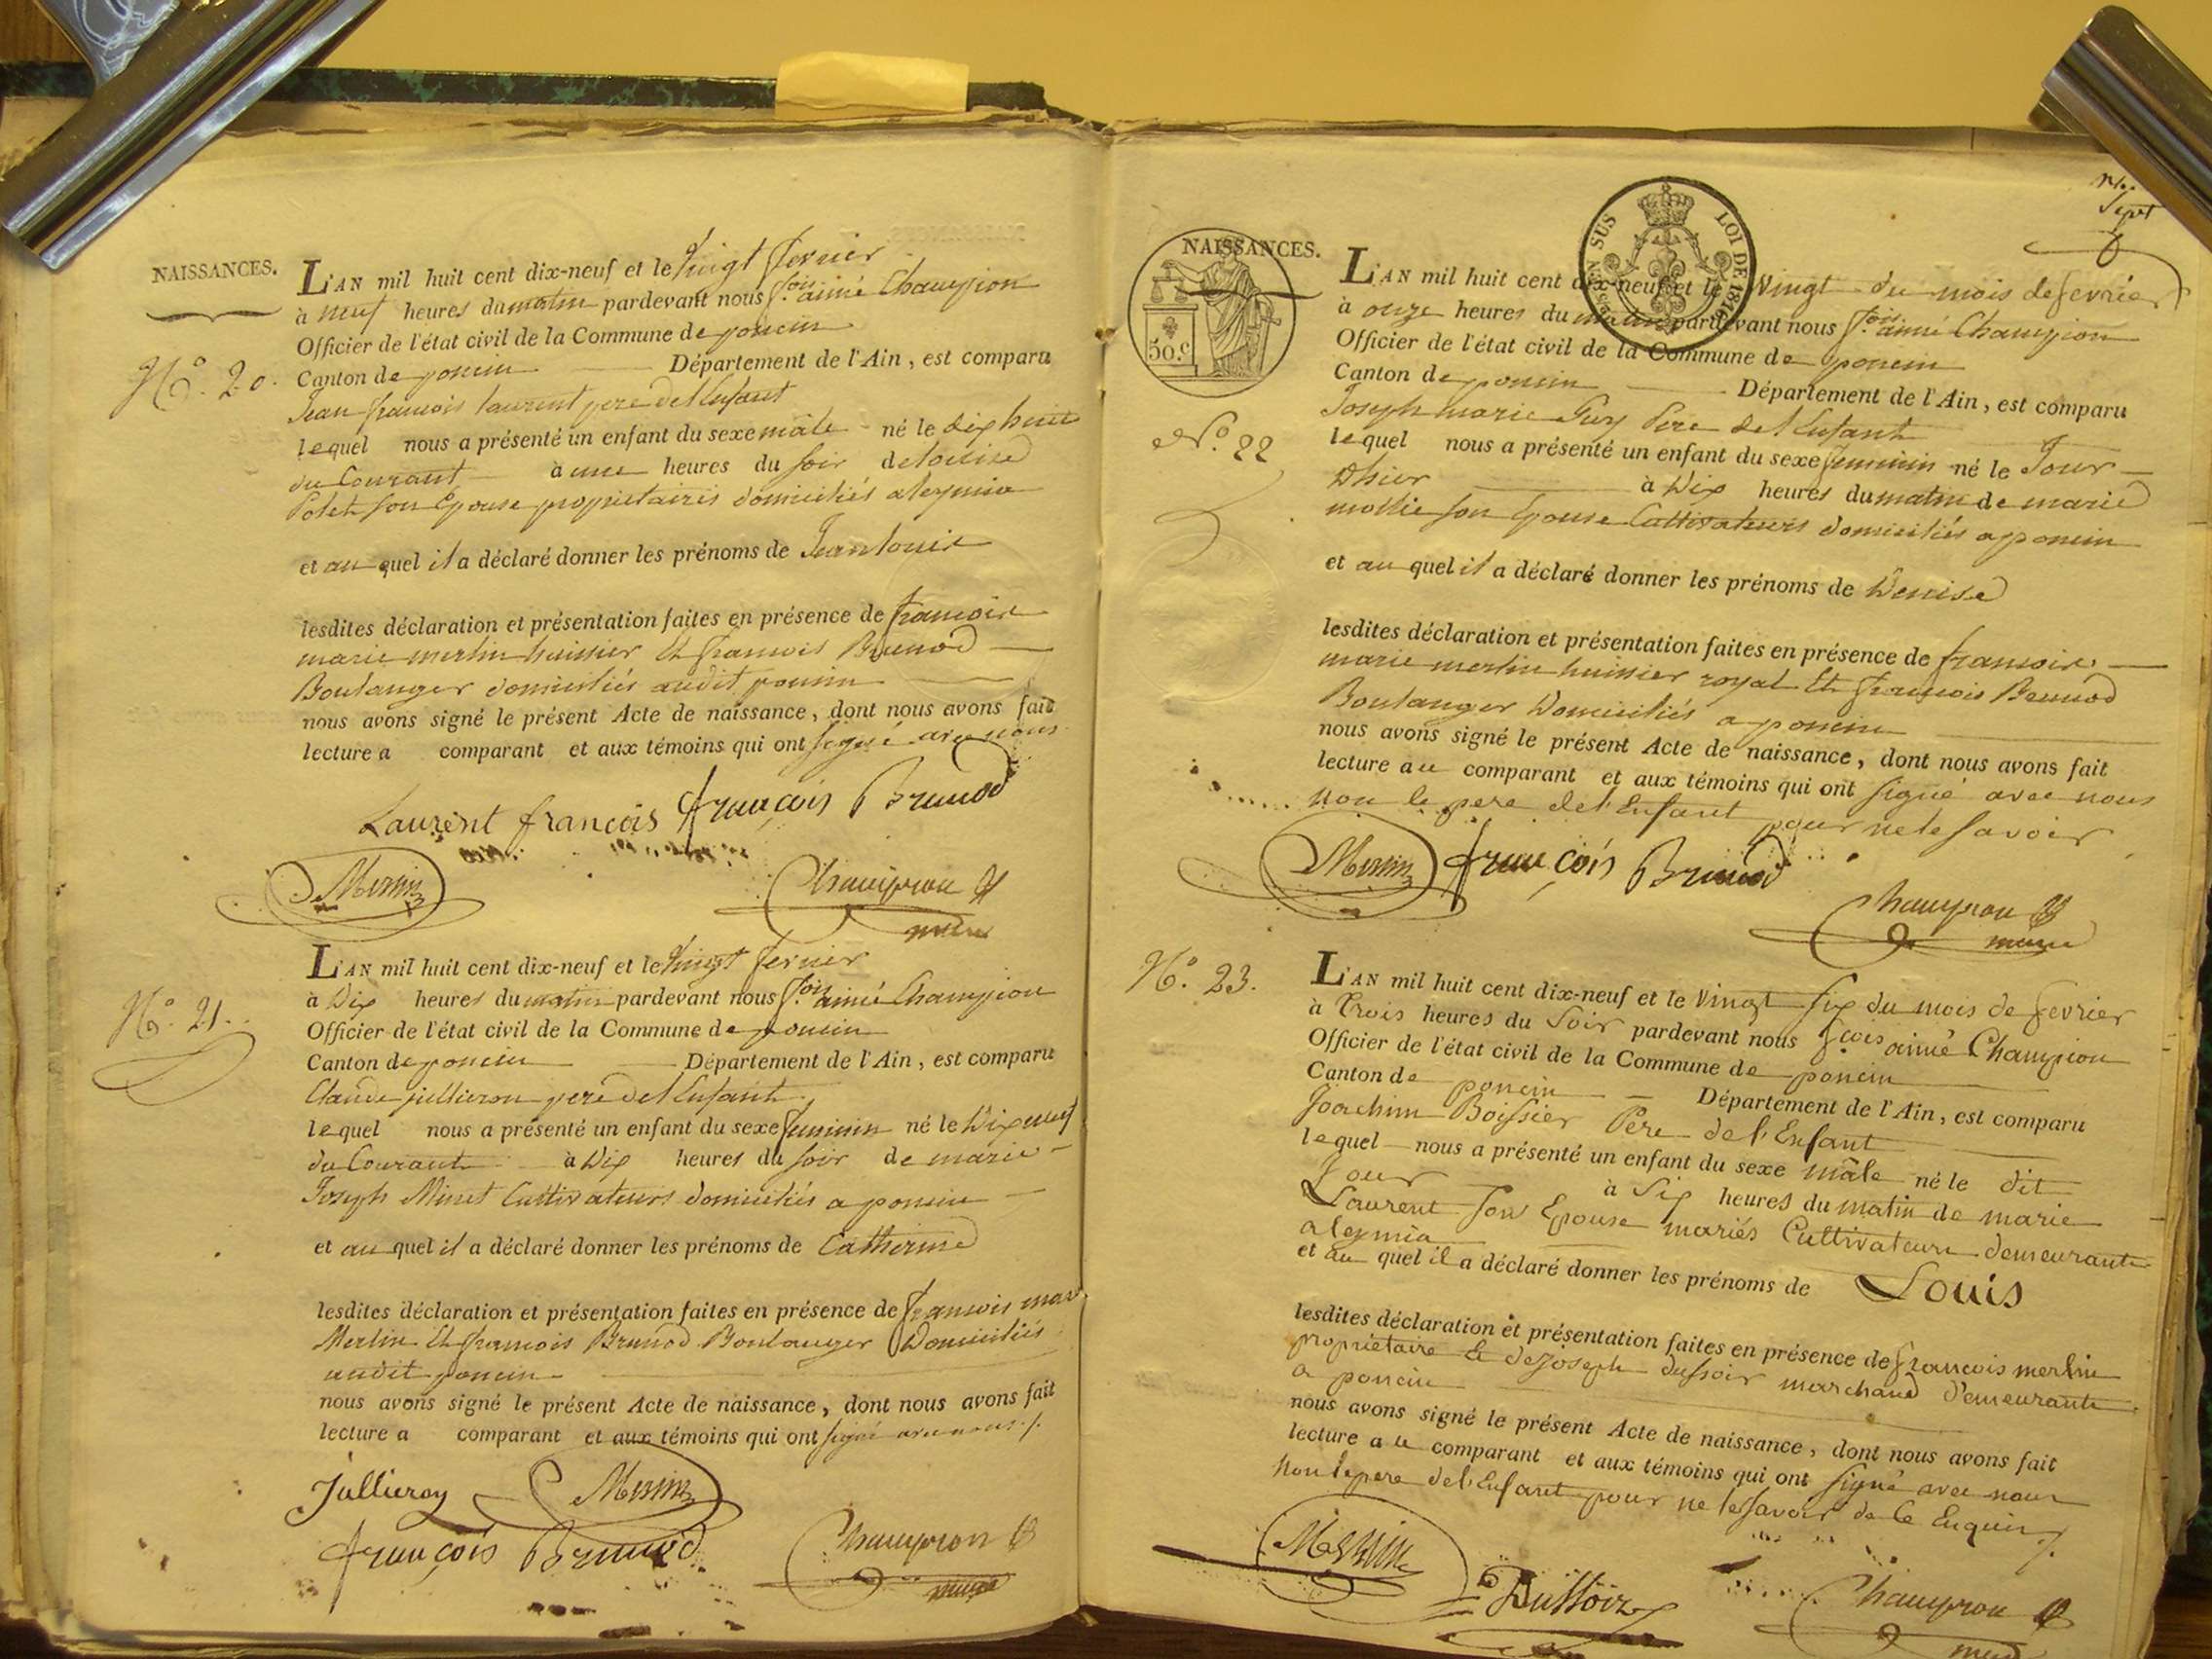 NAISSANCES.
N.º 20.
L'AN mil huit cent dix-neuf et le vingt fevrier
à neuf heures du matin pardevant nous f.ois aimé Champion
Officier de l'état civil de la Commune de poncin
Canton de poncin Département de l'Ain, est comparu
Jean francois laurent pere del Enfant
lequel nous a présenté un enfant du sexe mâle né le dix huit
du Courant à une heures du soir de louise
son Epouse proprietaires domiciliés a leymia
et au quel il a déclaré donner les prénoms de Jean louis
lesdites déclaration et présentation faites en présence de francois
marie merlin huissier Et francois Brunod
Boulanger domiciliés audit poncin
nous avons signé le présent Acte de naissance, dont nous avons fait
lecture a comparant et aux témoins qui ont signé avec nous
Laurent françois françois Brunod
Merlin Champion
maire
N.º 21.
L'AN mil huit cent dix-neuf et le vingt fevrier
à Dix heures du matin pardevant nous f.ois aimé Champion
Officier de l'état civil de la Commune de poncin
Canton de poncin Département de l'Ain, est comparu
Claude jullieron pere del Enfant
lequel nous a présenté un enfant du sexe feminin né le Dix neuf
du Courant à Dix heures du soir de marie
Joseph Minet Cultivateurs domiciliés a poncin
et au quel il a déclaré donner les prénoms de Catherine
lesdites déclaration et présentation faites en présence de francois marie
Merlin Et francois Brunod Boulanger Domiciliés
audit poncin
nous avons signé le présent Acte de naissance, dont nous avons fait
lecture a comparant et aux témoins qui ont signé avec nous ./.
Jullieron Merlin
françois Brunod Champion
maire
Sept
NAISSANCES.
50.c
EN SUS LOI DE 1816
N.º 22
L'AN mil huit cent dix-neuf et le Vingt du mois de fevrier
à onze heures du matin pardevant nous f.ois aimé Champion
Officier de l'état civil de la Commune de poncin
Canton de poncin Département de l'Ain, est comparu
Joseph marie Pere del Enfant
lequel nous a présenté un enfant du sexe feminin né le Jour
Dhier à Dix heures du matin de marie
mollie son Epouse Cultivateurs domiciliés a poncin
et au quel il a déclaré donner les prénoms de Denise
lesdites déclaration et présentation faites en présence de francois
marie merlin huissier royal Et francois Brunod
Boulanger Domiciliés a poncin
nous avons signé le présent Acte de naissance, dont nous avons fait
lecture au comparant et aux témoins qui ont signé avec nous
non le pere del'Enfant pour ne le savoir
Merlin françois Brunod
Champion
maire
N.º 23.
L'AN mil huit cent dix-neuf et le Vingt six du mois de fevrier
à Trois heures du Soir pardevant nous f.cois aimé Champion
Officier de l'état civil de la Commune de poncin
Canton de poncin Département de l'Ain, est comparu
Joachim Boissier Père de l'Enfant
lequel nous a présenté un enfant du sexe mâle né le dit
Jour à Six heures du matin de marie
Laurent son Epouse mariés Cultivateurs demeurants
a leymia
et au quel il a déclaré donner les prénoms de Louis
lesdites déclaration et présentation faites en présence de francois merlin
propriétaire & de joseph dussoir marchand Demeurants
a poncin
nous avons signé le présent Acte de naissance, dont nous avons fait
lecture au comparant et aux témoins qui ont signé avec nous
non le pere del'Enfant pour ne le savoir de ce Enquis ./.
Merlin
Dussoir Champion